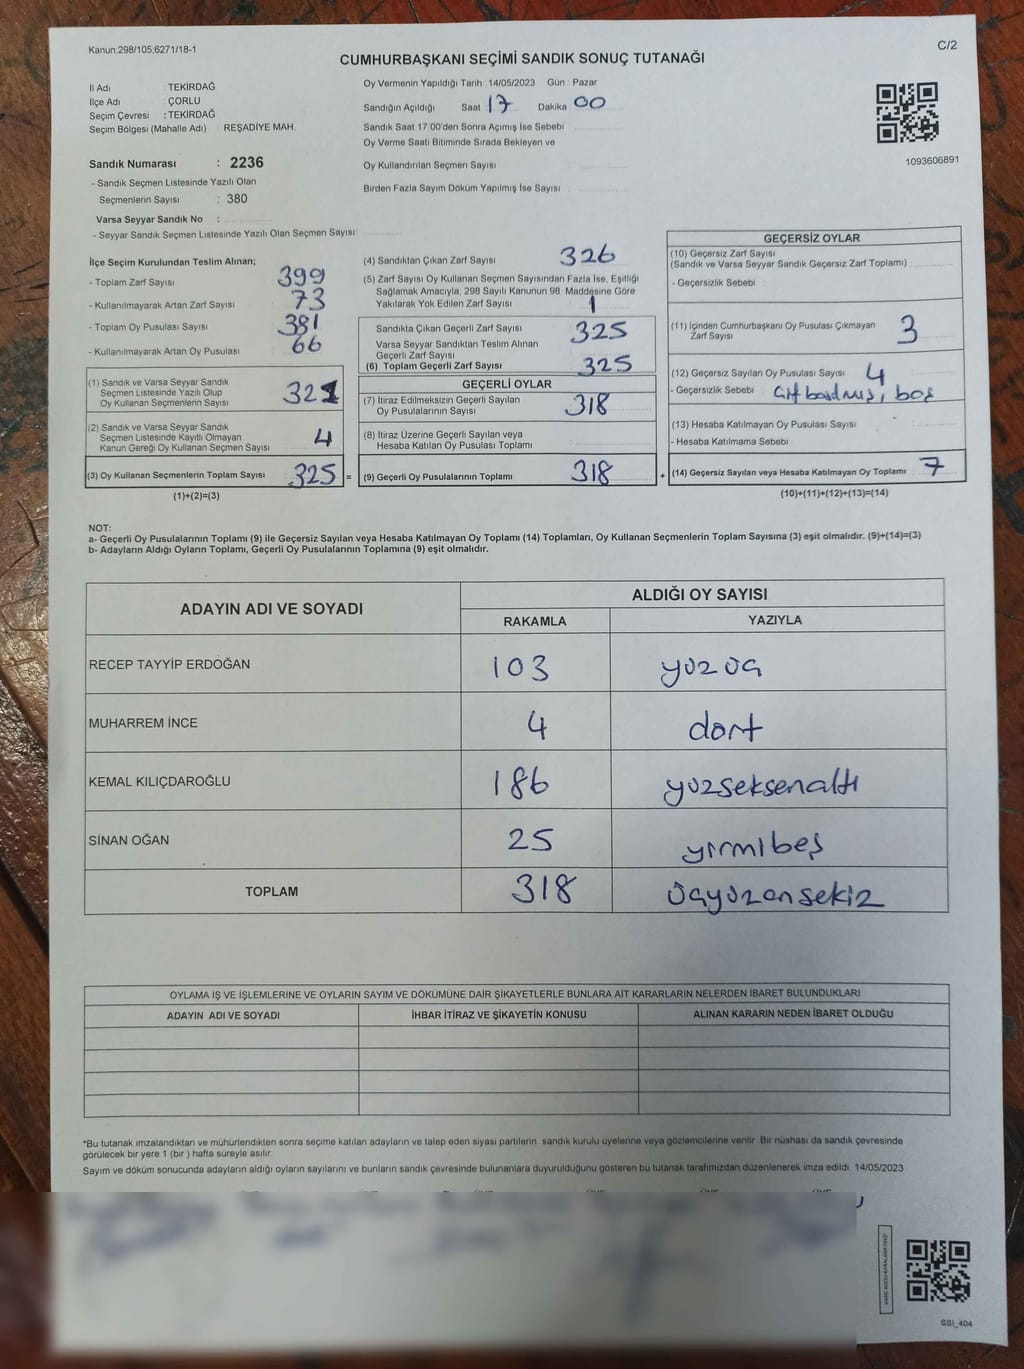 Kanun:298/105,6271/18-1
C/2
CUMHURBAŞKANI SEÇİMİ SANDIK SONUÇ TUTANAĞI
İl Adı : TEKİRDAĞ
İlçe Adı : ÇORLU
Seçim Çevresi : TEKİRDAĞ
Seçim Bölgesi (Mahalle Adı) : REŞADİYE MAH.
Sandık Numarası : 2236
- Sandık Seçmen Listesinde Yazılı Olan
Seçmenlerin Sayısı : 380
Varsa Seyyar Sandık No :
- Seyyar Sandık Seçmen Listesinde Yazılı Olan Seçmen Sayısı:
Oy Vermenin Yapıldığı Tarih : 14/05/2023 Gün : Pazar
Sandığın Açıldığı Saat : 17 Dakika : 00
Sandık Saat 17:00'den Sonra Açımış İse Sebebi :
Oy Verme Saati Bitiminde Sırada Bekleyen ve
Oy Kullandırılan Seçmen Sayısı :
Birden Fazla Sayım Döküm Yapılmış İse Sayısı :
1093606891
İlçe Seçim Kurulundan Teslim Alınan;
- Toplam Zarf Sayısı : 399
- Kullanılmayarak Artan Zarf Sayısı : 73
- Toplam Oy Pusulası Sayısı : 381
- Kullanılmayarak Artan Oy Pusulası : 66
(1) Sandık ve Varsa Seyyar Sandık
Seçmen Listesinde Yazılı Olup
Oy Kullanan Seçmenlerin Sayısı : 321
(2) Sandık ve Varsa Seyyar Sandık
Seçmen Listesinde Kayıtlı Olmayan
Kanun Gereği Oy Kullanan Seçmen Sayısı : 4
(3) Oy Kullanan Seçmenlerin Toplam Sayısı : 325 =
(1)+(2)=(3)
(4) Sandıktan Çıkan Zarf Sayısı : 326
(5) Zarf Sayısı Oy Kullanan Seçmen Sayısından Fazla İse, Eşitliği
Sağlamak Amacıyla, 298 Sayılı Kanunun 98. Maddesine Göre
Yakılarak Yok Edilen Zarf Sayısı : 1
Sandıkta Çıkan Geçerli Zarf Sayısı : 325
Varsa Seyyar Sandıktan Teslim Alınan
Geçerli Zarf Sayısı :
(6) Toplam Geçerli Zarf Sayısı : 325
GEÇERLİ OYLAR
(7) İtiraz Edilmeksizin Geçerli Sayılan
Oy Pusulalarının Sayısı : 318
(8) İtiraz Üzerine Geçerli Sayılan veya
Hesaba Katılan Oy Pusulası Toplamı :
(9) Geçerli Oy Pusulalarının Toplamı : 318 +
GEÇERSİZ OYLAR
(10) Geçersiz Zarf Sayısı
(Sandık ve Varsa Seyyar Sandık Geçersiz Zarf Toplamı) :
- Geçersizlik Sebebi :
(11) İçinden Cumhurbaşkanı Oy Pusulası Çıkmayan
Zarf Sayısı : 3
(12) Geçersiz Sayılan Oy Pusulası Sayısı : 4
- Geçersizlik Sebebi : çift basılmış, boş
(13) Hesaba Katılmayan Oy Pusulası Sayısı :
- Hesaba Katılmama Sebebi :
(14) Geçersiz Sayılan veya Hesaba Katılmayan Oy Toplamı : 7
(10)+(11)+(12)+(13)=(14)
NOT:
a- Geçerli Oy Pusulalarının Toplamı (9) ile Geçersiz Sayılan veya Hesaba Katılmayan Oy Toplamı (14) Toplamları, Oy Kullanan Seçmenlerin Toplam Sayısına (3) eşit olmalıdır. (9)+(14)=(3)
b- Adayların Aldığı Oyların Toplamı, Geçerli Oy Pusulalarının Toplamına (9) eşit olmalıdır.
ADAYIN ADI VE SOYADI
ALDIĞI OY SAYISI
RAKAMLA YAZIYLA
RECEP TAYYİP ERDOĞAN 103 yüzüç
MUHARREM İNCE 4 dört
KEMAL KILIÇDAROĞLU 186 yüzseksenaltı
SİNAN OĞAN 25 yirmibeş
TOPLAM 318 üçyüzonsekiz
OYLAMA İŞ VE İŞLEMLERİNE VE OYLARIN SAYIM VE DÖKÜMÜNE DAİR ŞİKAYETLERLE BUNLARA AİT KARARLARIN NELERDEN İBARET BULUNDUKLARI
ADAYIN ADI VE SOYADI İHBAR İTİRAZ VE ŞİKAYETİN KONUSU ALINAN KARARIN NEDEN İBARET OLDUĞU
*Bu tutanak imzalandıktan ve mühürlendikten sonra seçime katılan adayların ve talep eden siyasi partilerin sandık kurulu üyelerine veya gözlemcilerine verilir. Bir nüshası da sandık çevresinde
görülecek bir yere 1 (bir ) hafta süreyle asılır.
Sayım ve döküm sonucunda adayların aldığı oyların sayılarını ve bunların sandık çevresinde bulunanlara duyurulduğunu gösteren bu tutanak tarafımızdan düzenlenerek imza edildi. 14/05/2023
SSI_404